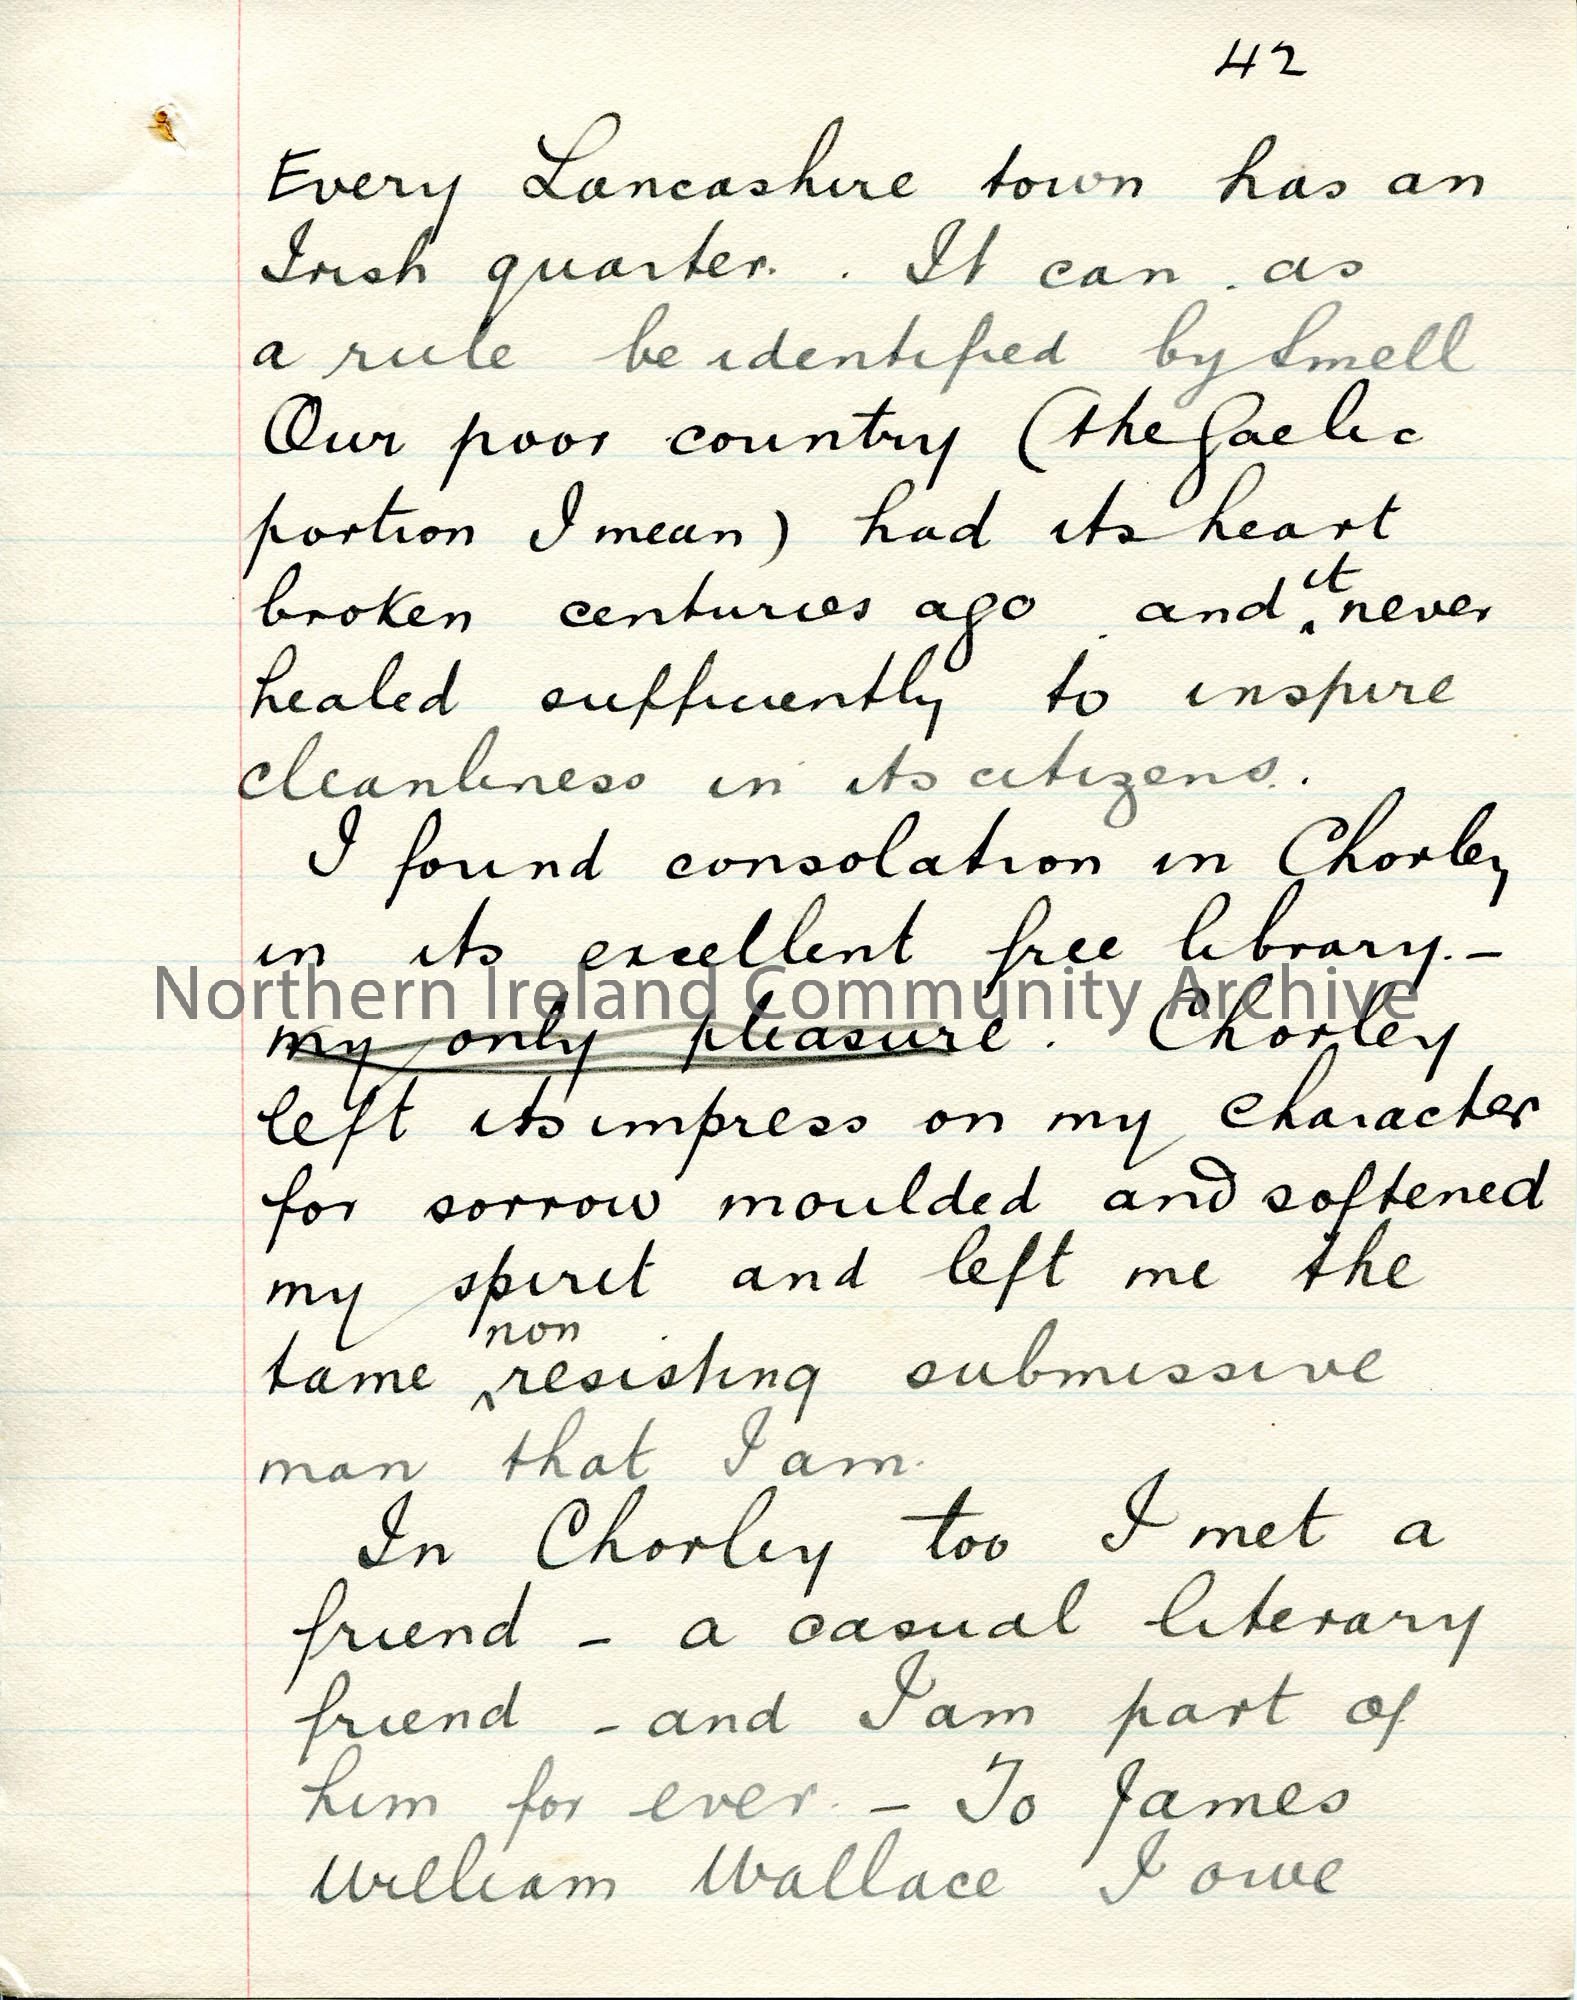 42
Every Lancashire town has an
Irish quarter. . It can . as
a rule be identified by smell
Our poor country (the Gaelic
portion I mean) had its heart
it
broken centuries ago . and never
healed sufficiently to inspire
cleanliness in its citizens.
I found consolation in Chorley
in its excellent free library. –
Northern Ireland Community Archive
my only pleasure. Chorley
left its impress on my character
for sorrow moulded and softened
my spirit and left me the
non
tame resisting submissive
man that I am.
In Chorley too I met a
friend – a casual literary
friend – and I am part of
him for ever. – To James
William Wallace I owe